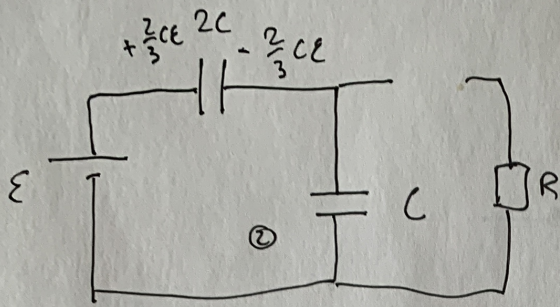 + 2/3 Cε 2C - 2/3 Cε
ε
C
R
②